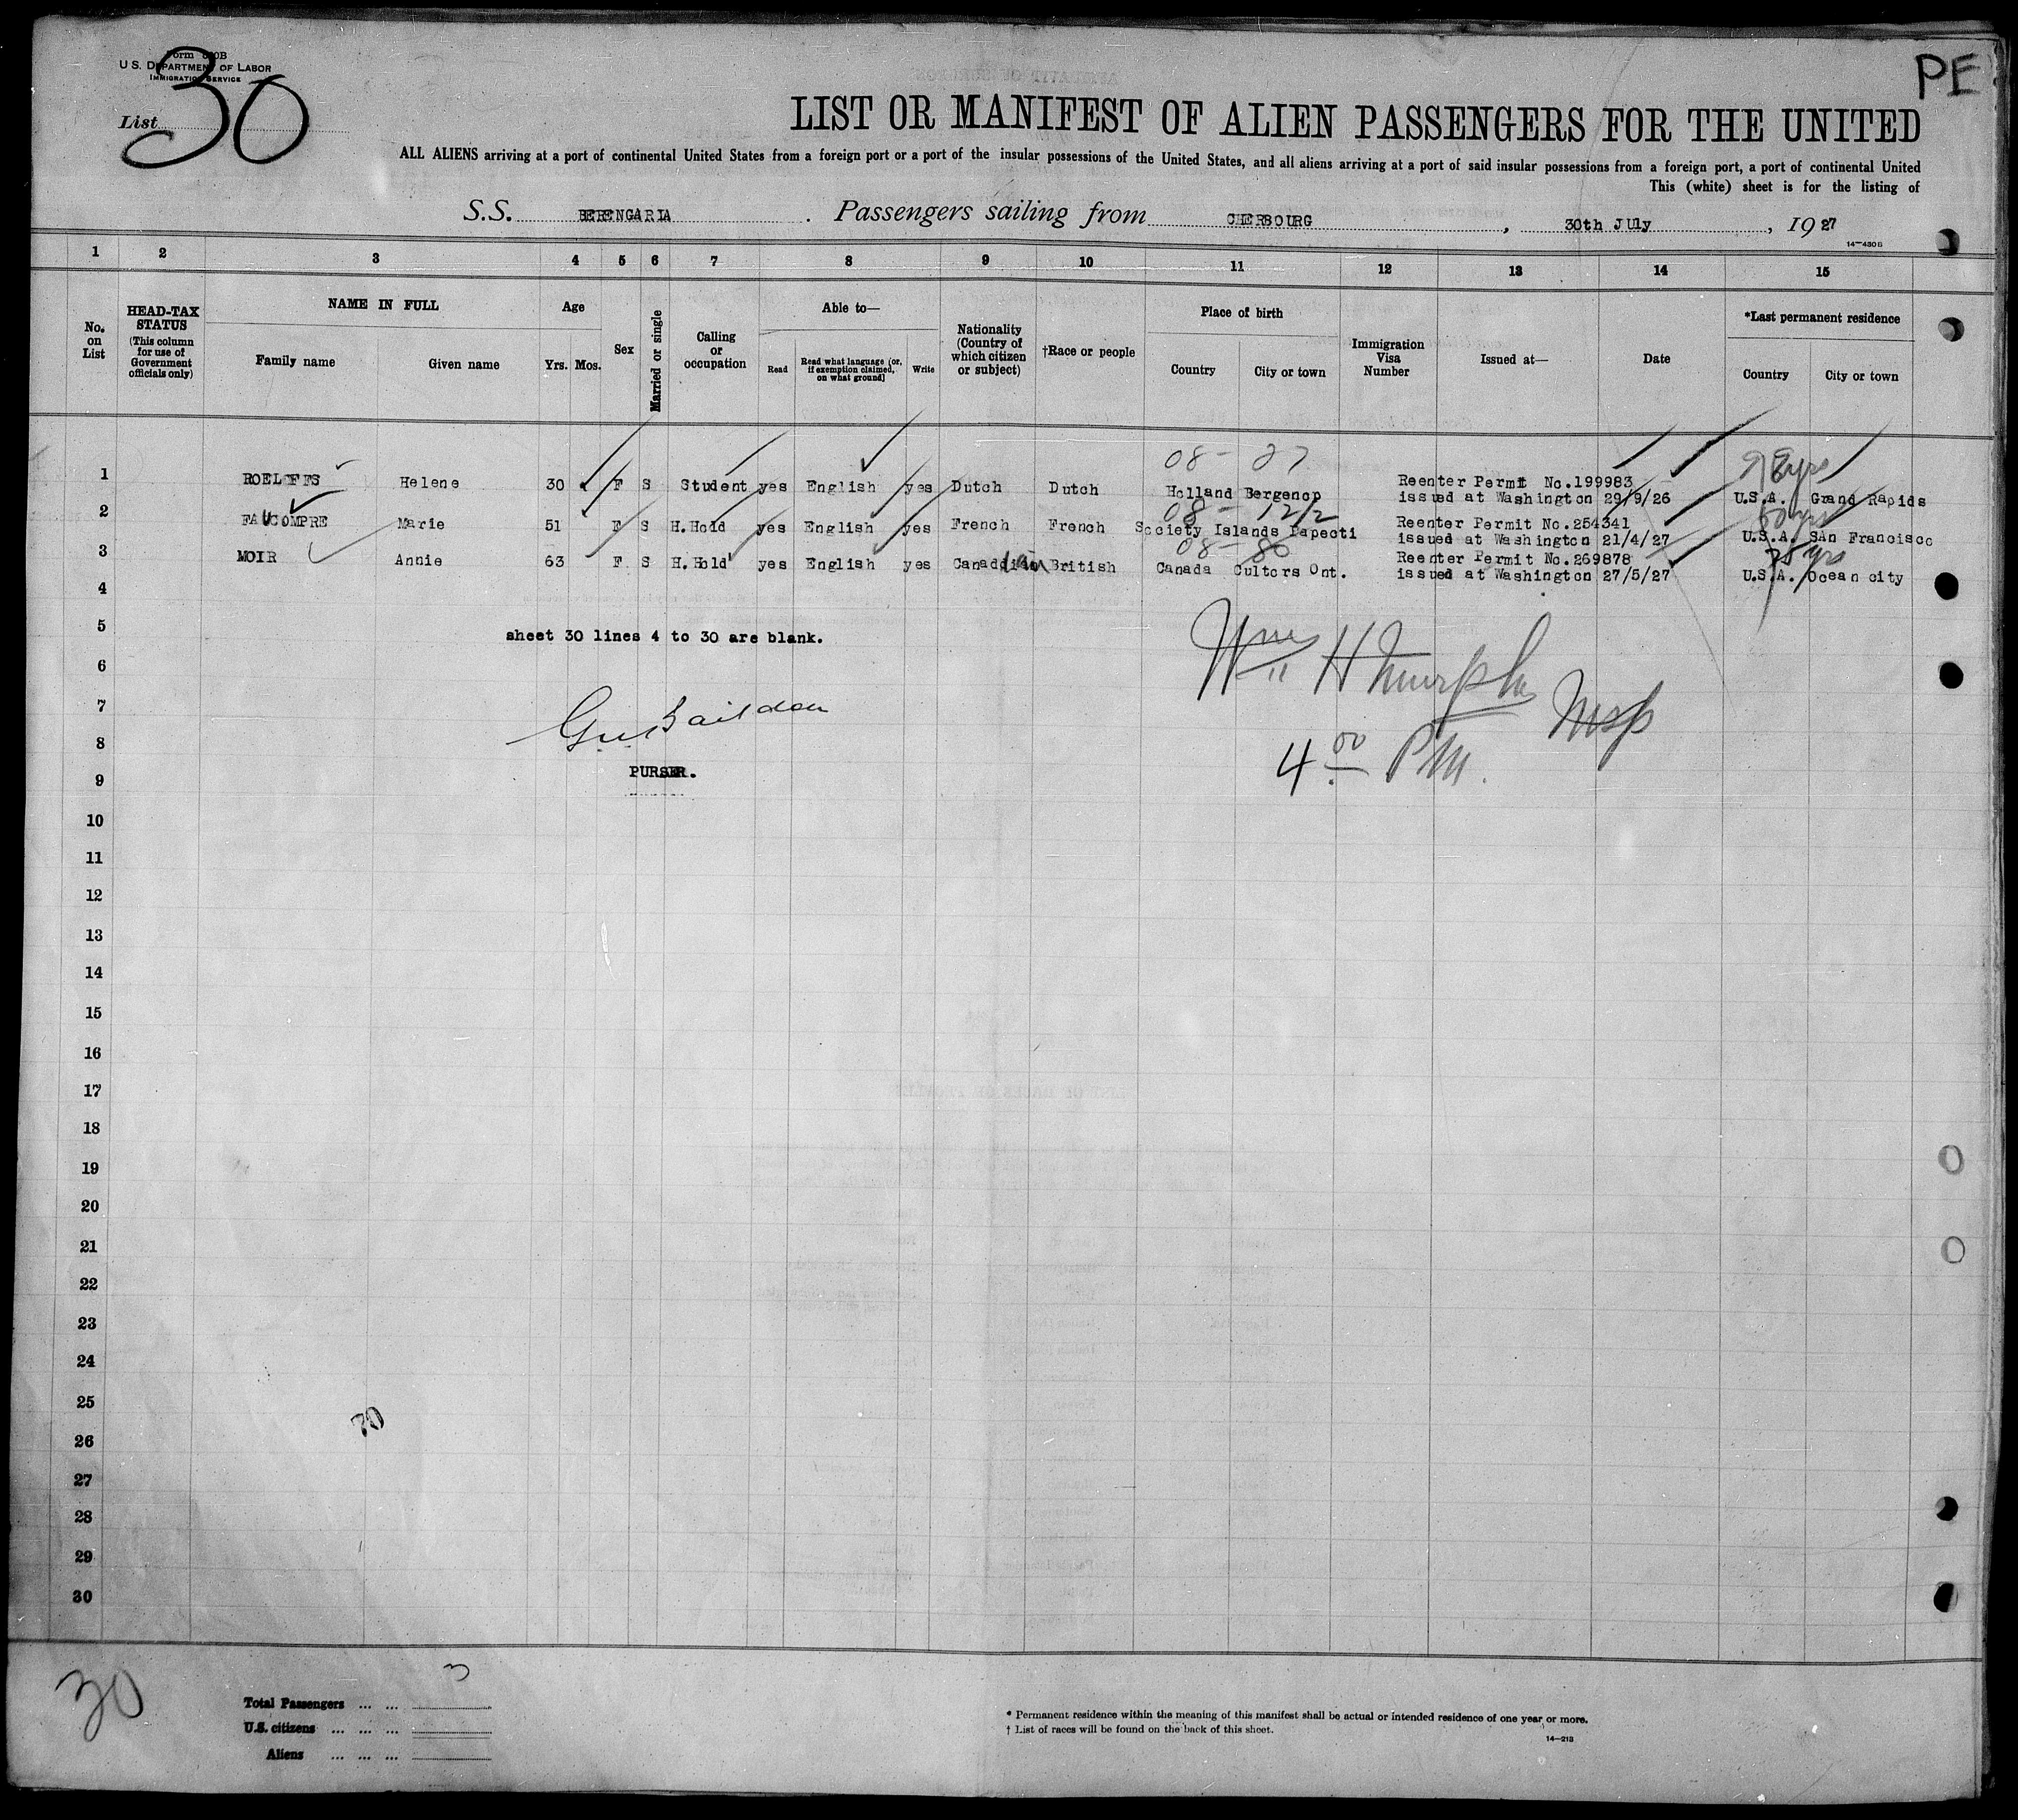 Form 630B
U.S. DEPARTMENT OF LABOR
IMMIGRATION SERVICE
List 30
PE
LIST OR MANIFEST OF ALIEN PASSENGERS FOR THE UNITED
ALL ALIENS arriving at a port of continental United States from a foreign port or a port of the insular possessions of the United States, and all aliens arriving at a port of said insular possessions from a foreign port, a port of continental United
This (white) sheet is for the listing of
S.S. BERENGARIA . Passengers sailing from CHERBOURG , 30th JUly , 19 27
14—430 B
1 2 3 4 5 6 7 8 9 10 11 12 13 14 15
No. on List
HEAD-TAX STATUS (This column for use of Government officials only)
NAME IN FULL
Family name Given name
Age
Yrs. Mos.
Sex
Married or single
Calling or occupation
Able to—
Read
Read what language [or, if exemption claimed, on what ground]
Write
Nationality (Country of which citizen or subject)
†Race or people
Place of birth
Country City or town
Immigration Visa Number
Issued at—
Date
*Last permanent residence
Country City or town
08 - 27
1 ROELOFFS Helene 30 F S Student yes English yes Dutch Dutch Holland Bergenop Reenter Permit No.199983 issued at Washington 29/9/26 U.S.A. Grand Rapids
08 - 12/2
2 FAUCOMPRE Marie 51 F S H.Hold yes English yes French French Society Islands Papeoti Reenter Permit No.254341 issued at Washington 21/4/27 U.S.A. SAn Francisco
08 - 80 yrs
3 MOIR Annie 63 F S H.Hold yes English yes Canaddian British Canada Cultors Ont. Reenter Permit No.269878 issued at Washington 27/5/27 U.S.A. Ocean city
4
5 sheet 30 lines 4 to 30 are blank.
6 Wm H Murphy
7
8
4 00 PM.
9 PURSER.
10
11
12
13
14
15
16
17
18
19
20
21
22
23
24
25
26
27
28
29
30
30
3
Total Passengers ... ...
U.S. citizens ... ... ...
Aliens ... ... ...
* Permanent residence within the meaning of this manifest shall be actual or intended residence of one year or more.
† List of races will be found on the back of this sheet.
14—213